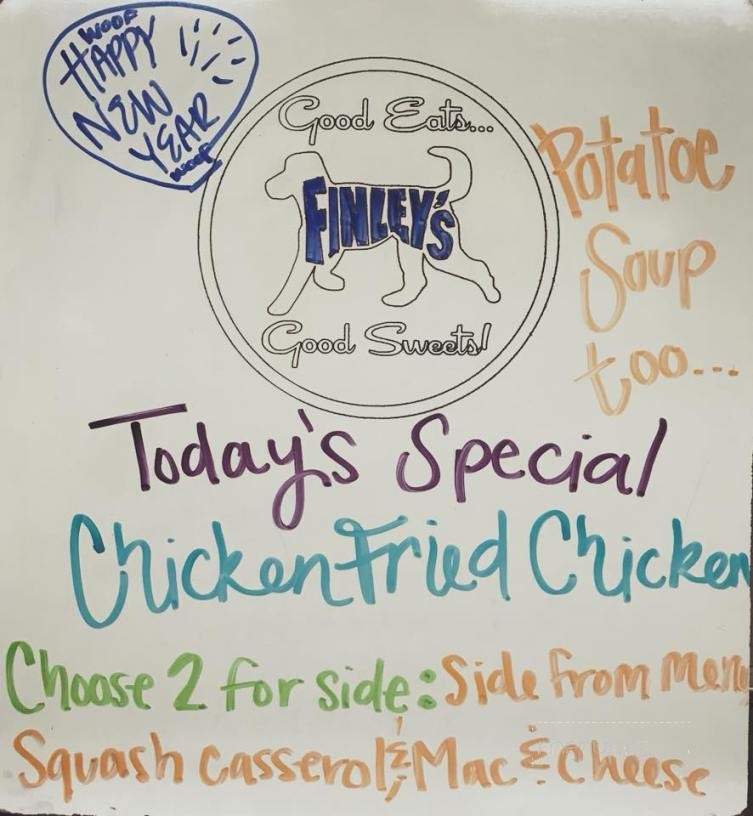 WOOF
HAPPY
NEW
YEAR
WOOF
Good Eats...
FINLEY'S
Good Sweets!
Potatoe
Soup
too...
Today's Special
Chicken Fried Chicken
Choose 2 for side: Side from Menu
Squash Casserol & Mac & Cheese